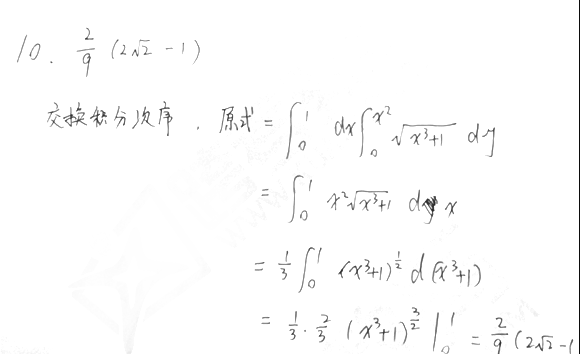 10. 2/9 (2√2 - 1)
交换积分次序. 原式 = ∫₀¹ dx ∫₀^{x²} √(x³+1) dy
= ∫₀¹ x²√(x³+1) dx
= 1/3 ∫₀¹ (x³+1)^{1/2} d(x³+1)
= 1/3 · 2/3 (x³+1)^{3/2} |₀¹ = 2/9 (2√2 - 1